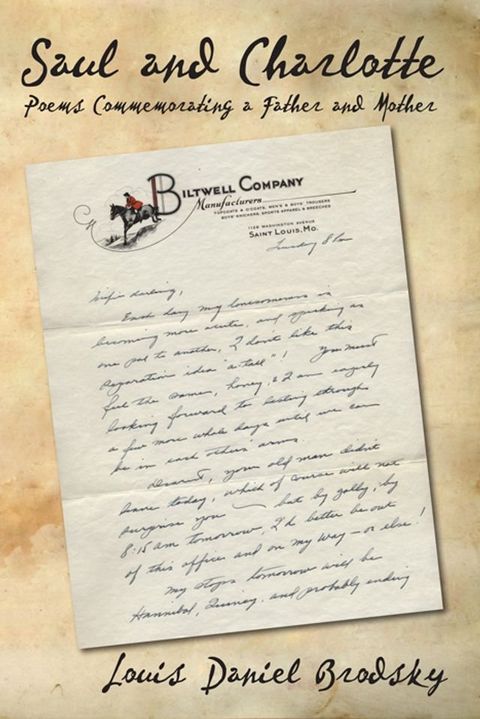 Saul and Charlotte
Poems Commemorating a Father and Mother
BILTWELL COMPANY
Manufacturers
TOPCOATS & O'COATS, MEN'S & BOYS' TROUSERS
BOYS' KNICKERS, SPORTS APPAREL & BREECHES
1128 WASHINGTON AVENUE
SAINT LOUIS, MO.
Tuesday 8 P.M.
darling,
Each day my lonesomeness is
becoming more acute, and speaking as
one pal to another, I don't like this
separation idea "a-tall"! You must
feel the same, honey, & I am eagerly
looking forward to lasting through
a few more whole days until we can
be in each others' arms.
Dearest, your old man didn't
leave today, which of course will not
surprise you — but by golly, by
8:15 am tomorrow, I'd better be out
of this office and on my way — or else!
My stops tomorrow will be
Hannibal, Quincy, and probably ending
Louis Daniel Brodsky